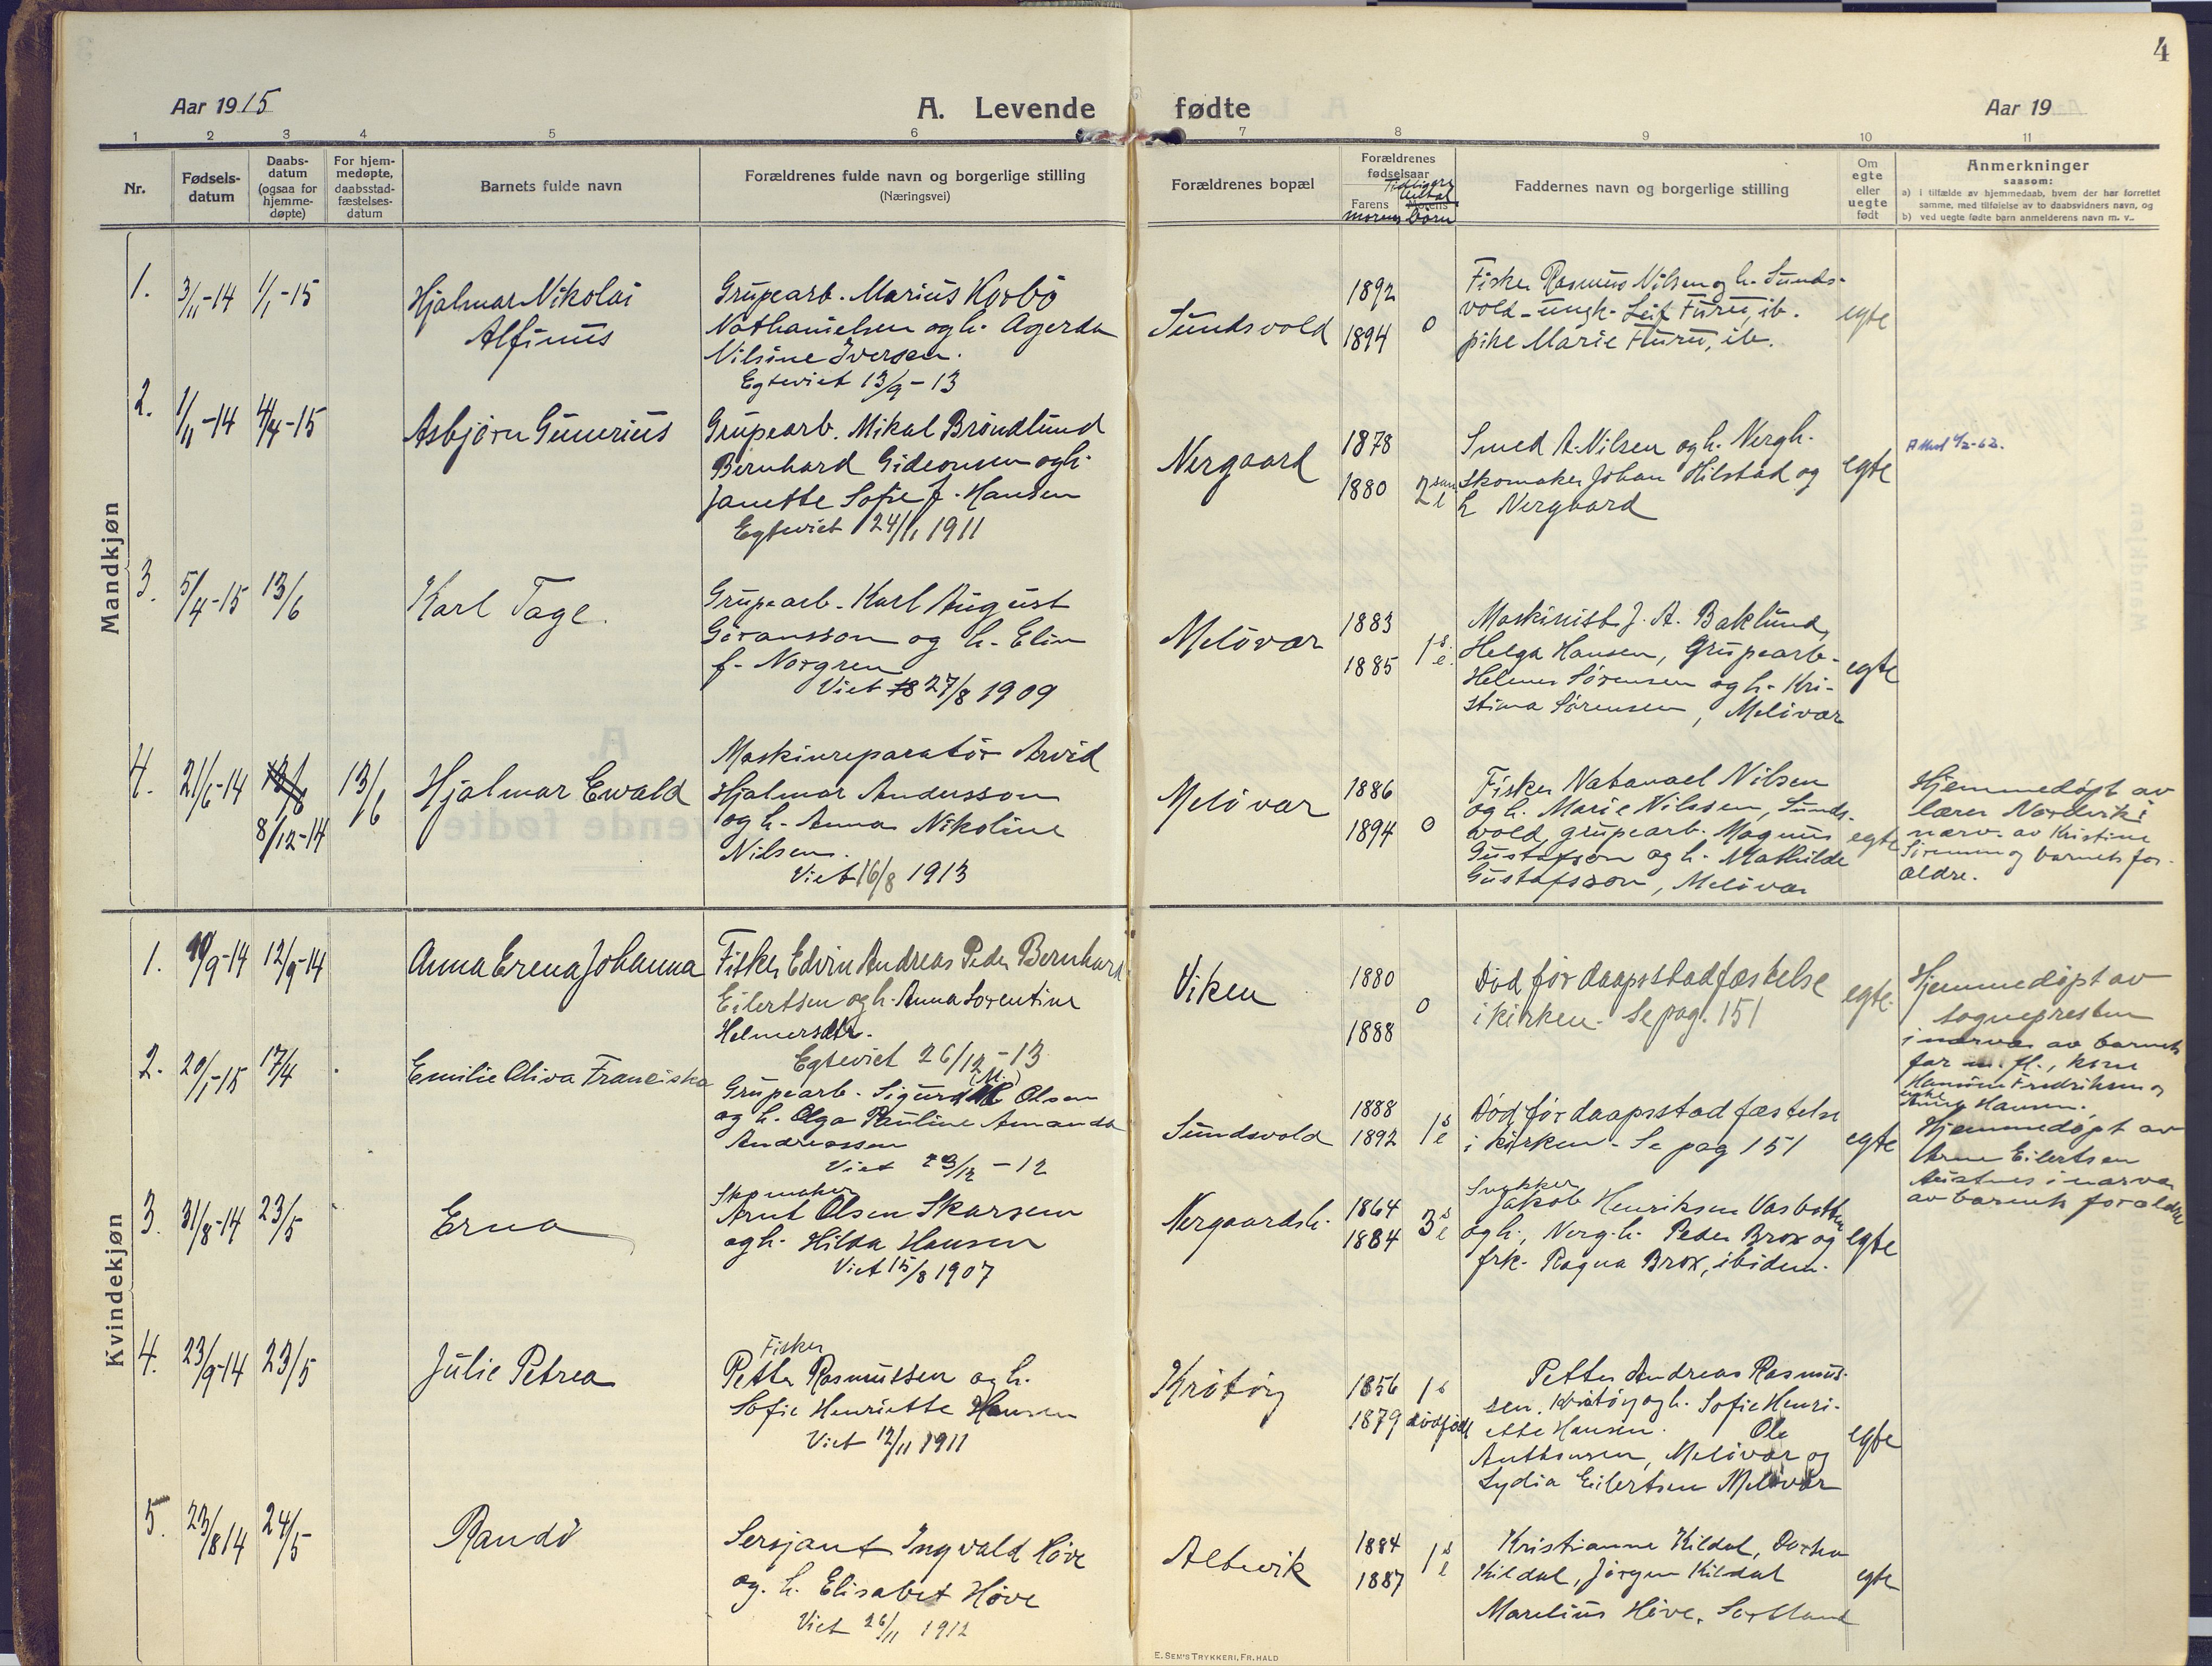 4
Aar 1915
A. Levende fødte
Aar 19
1 2 3 4 5 6 7 8 9 10 11
Nr.
Fødsels-
datum
Daabs-
datum
(ogsaa for
hjemme-
døpte)
For hjem-
medøpte,
daabsstad-
fæstelses-
datum
Barnets fulde navn
Forældrenes fulde navn og borgerlige stilling
(Næringsvei)
Forældrenes bopæl
Forældrenes
fødselsaar
Tidligere
Antal
Farens Morens
morens børn
Faddernes navn og borgerlige stilling
Om
egte
eller
uegte
født
Anmerkninger
saasom:
a) i tilfælde av hjemmedaab, hvem der har forrettet
samme, med tilføielse av to daabsvidners navn, og
b) ved uegte fødte barn anmelderens navn m. v..
Mandkjøn
1. 3/11-14 1/1-15
Hjalmar Nikolai
Alfinus
Grupearb. Marius Korbø
Nathanielsen og h. Agerda
Nilsine Iversen.
Egteviet 13/9-13
Sundsvold
1892
1894 0
Fisker Rasmus Nilsen og h. Sunds-
vold - ungk. Leif Furu, ib.
pike Marie Furu, ib.
egte
2. 1/11-14 4/4-15
Asbjørn Gunerius
Grupearb. Mikal Brøndlund
Bernhard Gideonsen og h.
Janette Sofie f. Hansen
Egteviet 24/11 1911
Nergaard
1878
1880 2 l
Smed A. Nilsen og h. Nergh.
skomaker Johan Hilstad og
h Nergaard
egte
3. 5/4-15 13/6
Karl Tage.
Grupearb. Karl August
Göransson og h. Elin
f. Norgren
Viet 27/8 1909
Meløvær
1883
1885 1 s. l.
Maskinist J. A. Baklund,
Helga Hansen, Grupearb.
Helmer Sørensen og h. Kri-
stina Sørensen, Meløvær
egte
4. 21/6-14 13/6
8/12-14 13/6
Hjalmar Ewald
Maskinreparatør Arvid
Hjalmar Andersson
og h. Anna Nikoline
Nilsen.
Viet 16/8 1913
Meløvær
1886
1894 0
Fisker Natanael Nilsen
og h. Marie Nilssen, Sunds-
vold, grupearb. Magnus
Gustafson og h. Mathilde
Gustafsson, Meløvær
egte
Hjemmedøpt av
lærer Nordvik i
nærv. av Kristine
Sørensen og barnets for-
ældre.
Kvindekjøn
1. 10/9-14 12/9-14
Anna Erena Johanna
Fisker Edvin Andreas Peder Bernhard
Eilertsen og h. Anna Sorentine
Helmersdtr.
Egteviet 26/12-13
Viken
1880
1888 0
Død før daapsstadfæstelse
i kirken. Se pag. 151
egte.
Hjemmedøpt av
sognepresten
i nærvær av barnets
far m. fl., kone
Hansine Fredriksen og
Hansen.
2. 20/1-15 17/4
Emilie Oliva Franciska
Grupearb. Sigurd (M.) Olsen
og h. Olga Pauline Amanda
Andreassen
Viet 23/12-12
Sundsvold
1888
1892 1 s l
Død før daapsstadfæstelse
i kirken. Se pag 151
egte
Hjemmedøpt av
Arne Eilertsen
i nærvær
av barnets forældre
3. 31/8-14 23/5
Erna
Skomaker
Arnt Olsen Skarsem
og h. Hilda Hansen
Viet 15/8 1907
Nergaardsh.
1864
1884 3 s l
Snekker
Jakob Henriksen Vasbotten
og h., Nerg.h. Peder Brox og
frk. Ragna Brox, ibidem.
egte
4. 23/9-14 23/5
Julie Petrea
Fisker
Petter Rasmussen og h.
Sofie Henriette Hansen
Viet 12/11 1911
Krøtøy
1856 1 s
1879 dødfødt
Petter Andreas Rasmus-
sen, Krøtøy og h. Sofie Henri-
ette Hansen. Ole
Anthonsen, Meløvær og
Lydia Eilertsen Meløvær
egte
5. 23/8 14 24/5
Randi
Sersjant Ingvald Høve
og. h. Elisabet Høve
Viet 26/11 1912
Altevik
1884
1887 1 s l
Kristianne Kildal, Dortea
Kildal, Jørgen Kildal
Marelius Høve, Sortland
egte
E. SEM'S TRYKKERI, FR. HALD